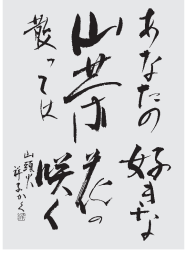 あなたの好きな
山茶花の
散っては咲く
山頭火